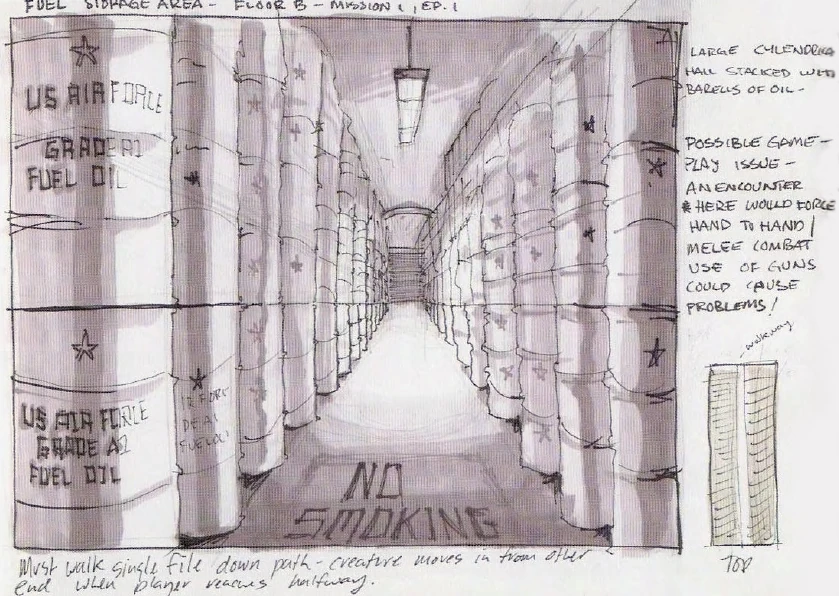 FUEL STORAGE AREA - FLOOR B - MISSION 1, EP. 1
US AIR FORCE
GRADE A1
FUEL OIL
US AIR FORCE
GRADE A1
FUEL OIL
FUEL OIL
NO
SMOKING
LARGE CYLENDRICAL
HALL STACKED WITH
BARELLS OF OIL -
POSSIBLE GAME-
PLAY ISSUE -
AN ENCOUNTER
* HERE WOULD FORCE
HAND TO HAND /
MELEE COMBAT
USE OF GUNS
COULD CAUSE
PROBLEMS!
walkway
TOP
Must walk single file down path - creature moves in from other
end when player reaches halfway.